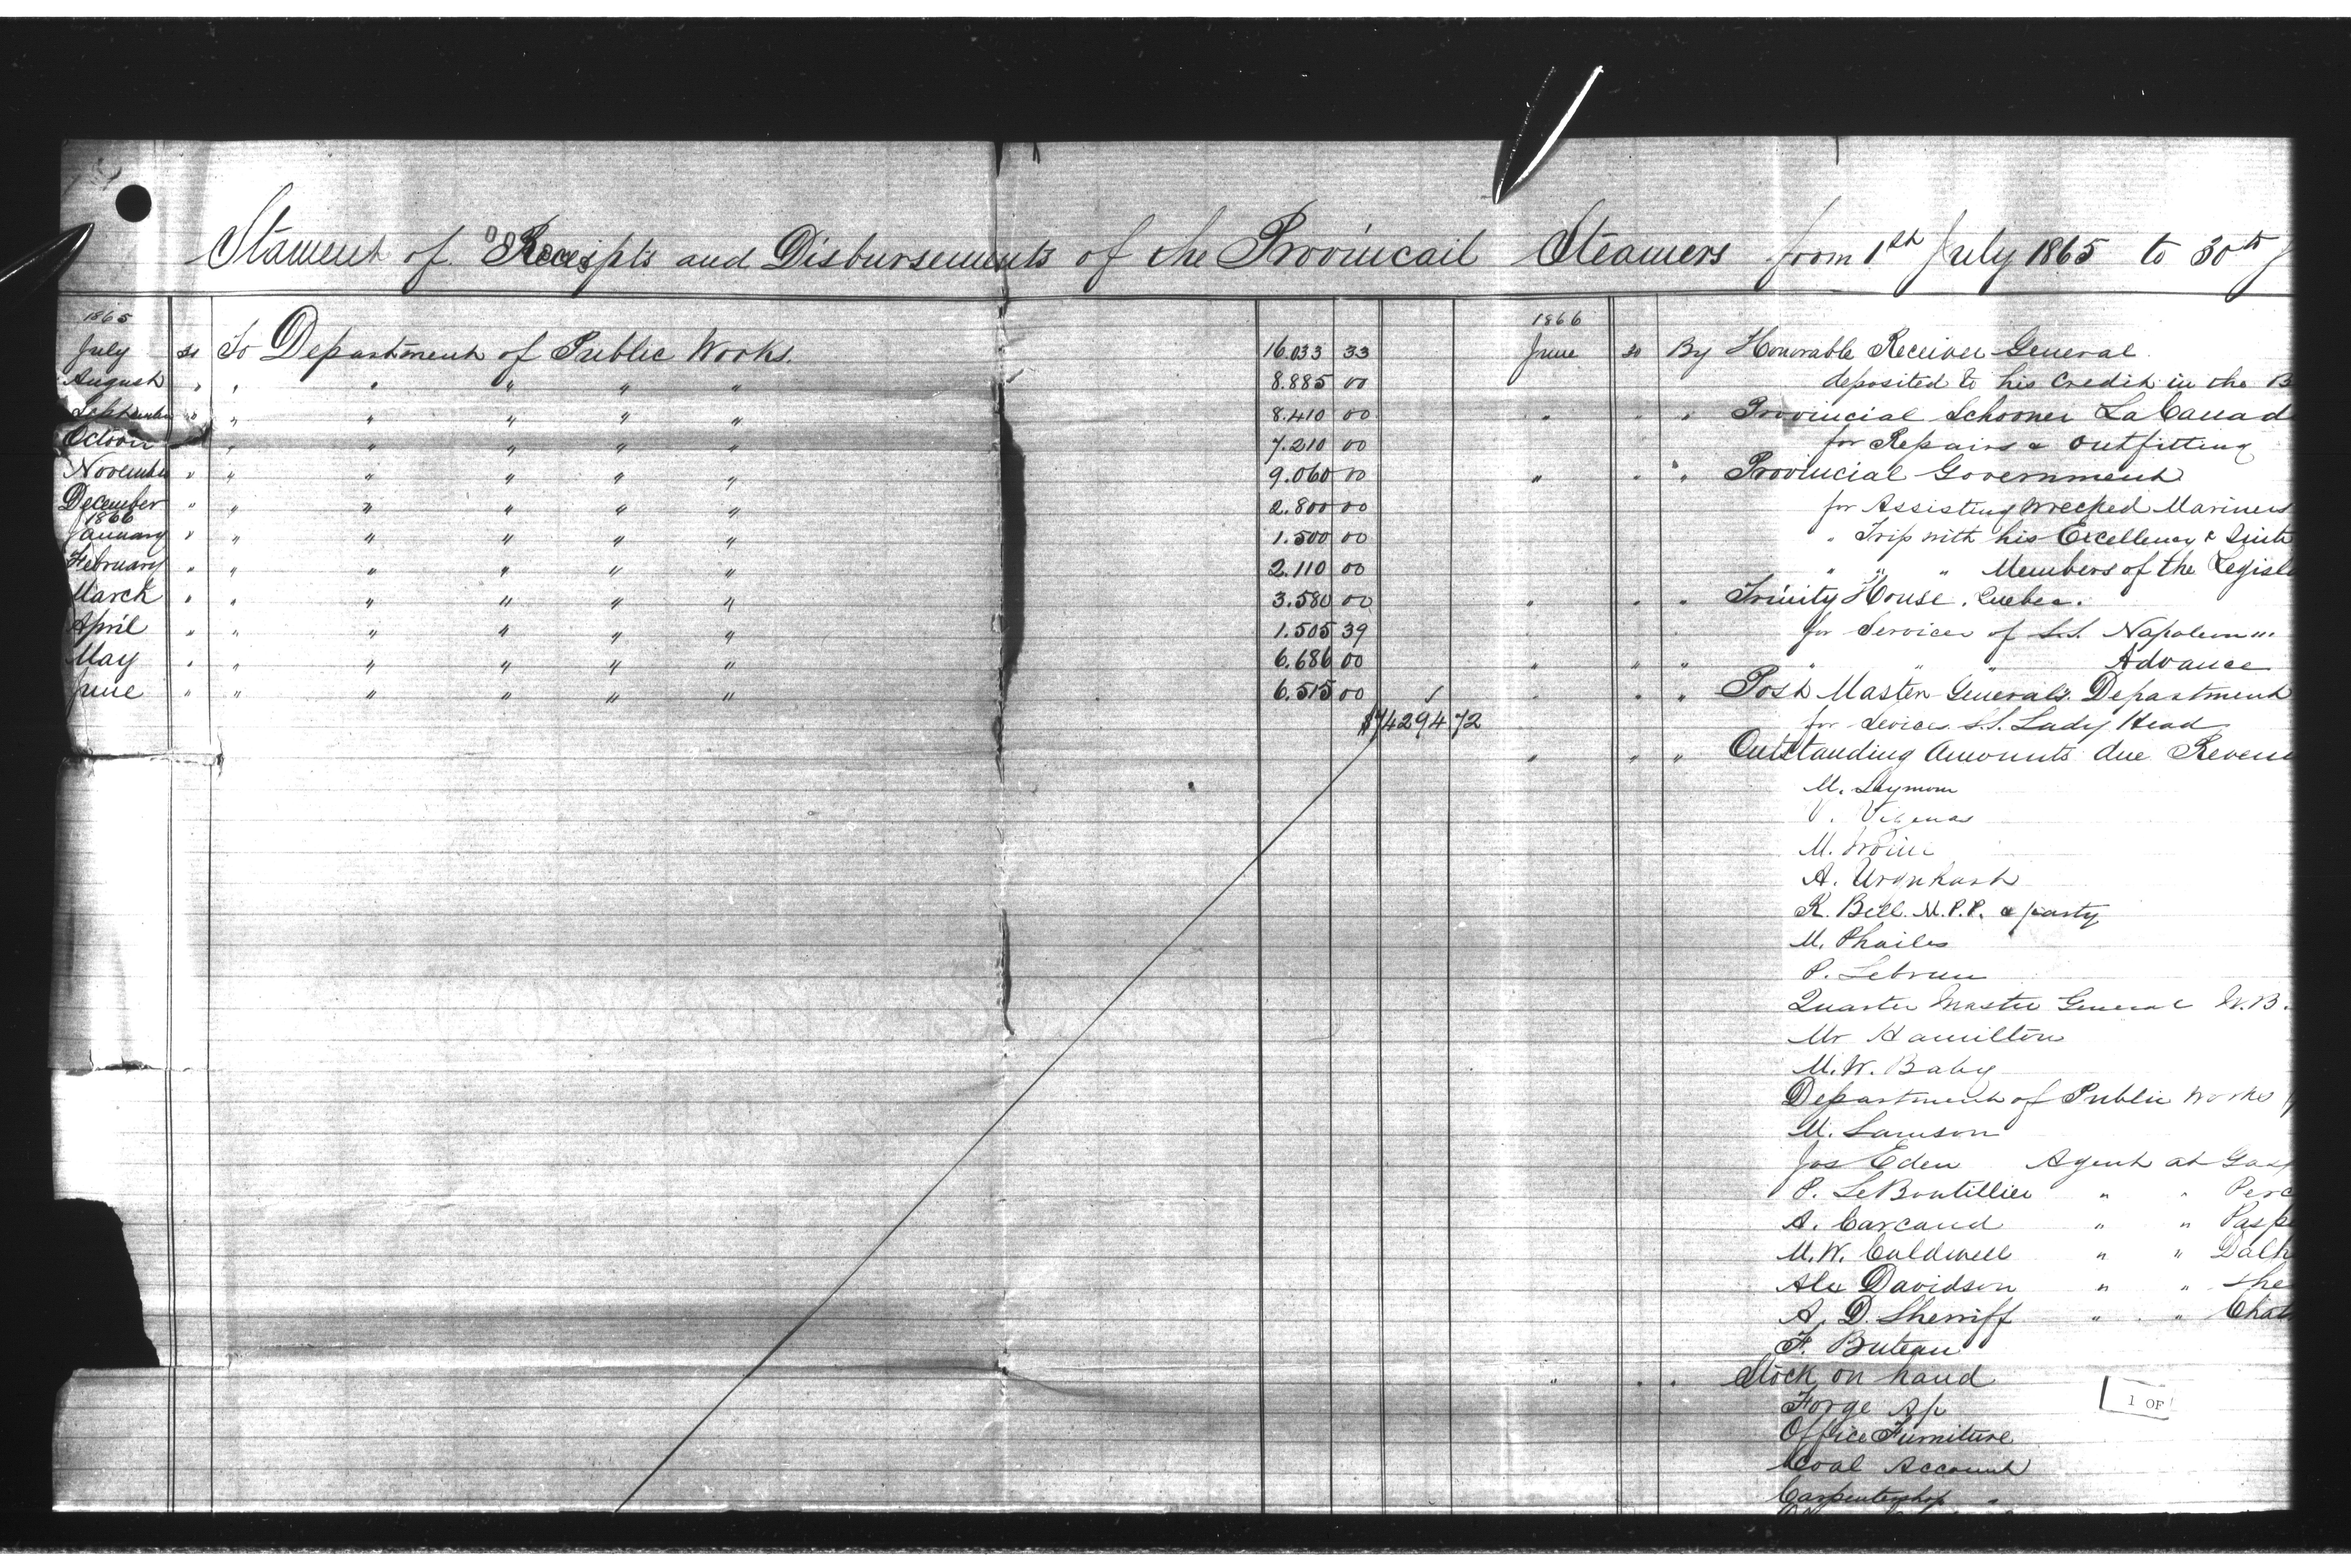 Stament of Receipts and Disbursements of the Provincail Steamers from 1th July 1865 to 30th J
1865
July 31 To Department of Public Works. 16.033 33
August " " " " " " 8.885 00
September " " " " " " 8.410 00
October " " " " " 7.210 00
November " " " " " " 9.060 00
December " " " " " " 2.800 00
1866
January " " " " " " 1.500 00
February " " " " " " 2.110 00
March " " " " " " 3.580 00
April " " " " " " 1.505 39
May " " " " " " 6.686 00
June " " " " " " 6.515 00
$74294 72
1866
June 30 By Honorable Receiver General
deposited to his Credit in the B
" " " Provincial Schooner La Canad
for Repairs & Outfitting
" " " Provincial Government
for Assisting Wrecked Mariners
" Trip with his Excellency & Suite
" " " Members of the Legisl
" " " Trinity House. Quebec.
for Services of S.S. Napoleon III
" " " " " " Advance
" " " Post Master Generals Department
for Sevices S.S. Lady Head
" " " Outstanding Amounts due Revenu
M. Seymour
V. Vigneau
M.
A. Urquhart
R. Bell. M.P.P. & party
M. Phailes
P. Lebrun
Quarter Master General N.B.
Mr Hamilton
M.W. Baby
Department of Public Works
M. Samson
Jas Eden Agent at Gasp
P. LeBoutillier " " Perc
A. Carcaud " " Paspe
M.W. Caldwell " " Dalh
Alex Davidson " " She
A. D. Sherriff " " Chat
F. Buteau
" " " Stock on hand
Forge A/c
Office Furniture
Coal Account
Carpentershop "
1 OF